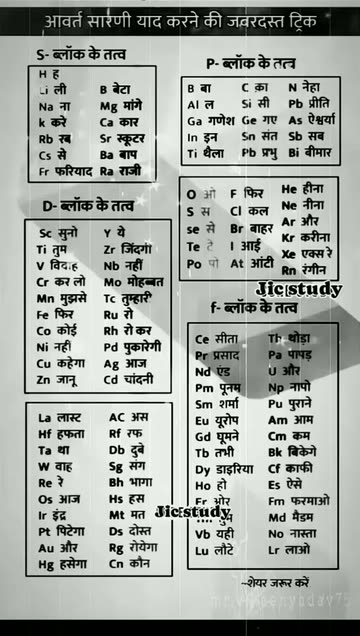 आवर्त सारणी याद करने की जबरदस्त ट्रिक
S- ब्लॉक के तत्व
H ह
Li ली B बेटा
Na ना Mg मांगे
k करे Ca कार
Rb रब Sr स्कूटर
Cs से Ba बाप
Fr फरियाद Ra राजी
P- ब्लॉक के तत्व
B बा C का N नेहा
Al ल Si सी Pb प्रीति
Ga गणेश Ge गए As ऐश्वर्या
In इन Sn संत Sb सब
Ti थैला Pb प्रभु Bi बीमार
O ओ F फिर He हीना
S स Cl कल Ne नीना
se से Br बाहर Ar और
Te टे I आई Kr करीना
Po पो At आंटी Xe एक्स रे
Rn रंगीन
Jic study
D- ब्लॉक के तत्व
Sc सुनो Y ये
Ti तुम Zr जिंदगी
V विवाह Nb नहीं
Cr कर लो Mo मोहब्बत
Mn मुझसे Tc तुम्हारी
Fe फिर Ru रो
Co कोई Rh रो कर
Ni नहीं Pd पुकारेगी
Cu कहेगा Ag आज
Zn जानू Cd चांदनी
La लास्ट AC अस
Hf हफता Rf रफ
Ta था Db दुबे
W वाह Sg संग
Re रे Bh भागा
Os आज Hs हस
Ir इंद्र Mt मत
Pt पिटेगा Ds दोस्त
Au और Rg रोयेगा
Hg हसेगा Cn कौन
f- ब्लॉक के तत्व
Ce सीता Th थोड़ा
Pr प्रसाद Pa पापड़
Nd एंड U और
Pm पूनम Np नापो
Sm शर्मा Pu पुराने
Eu यूरोप Am आम
Gd घूमने Cm कम
Tb तभी Bk बिकेगे
Dy डाइरिया Cf काफी
Ho हो Es ऐसे
Er ओर Fm फरमाओ
तुम Md मैडम
Yb यही No नास्ता
Lu लौटे Lr लाओ
Jic study
~शेयर जरूर करें